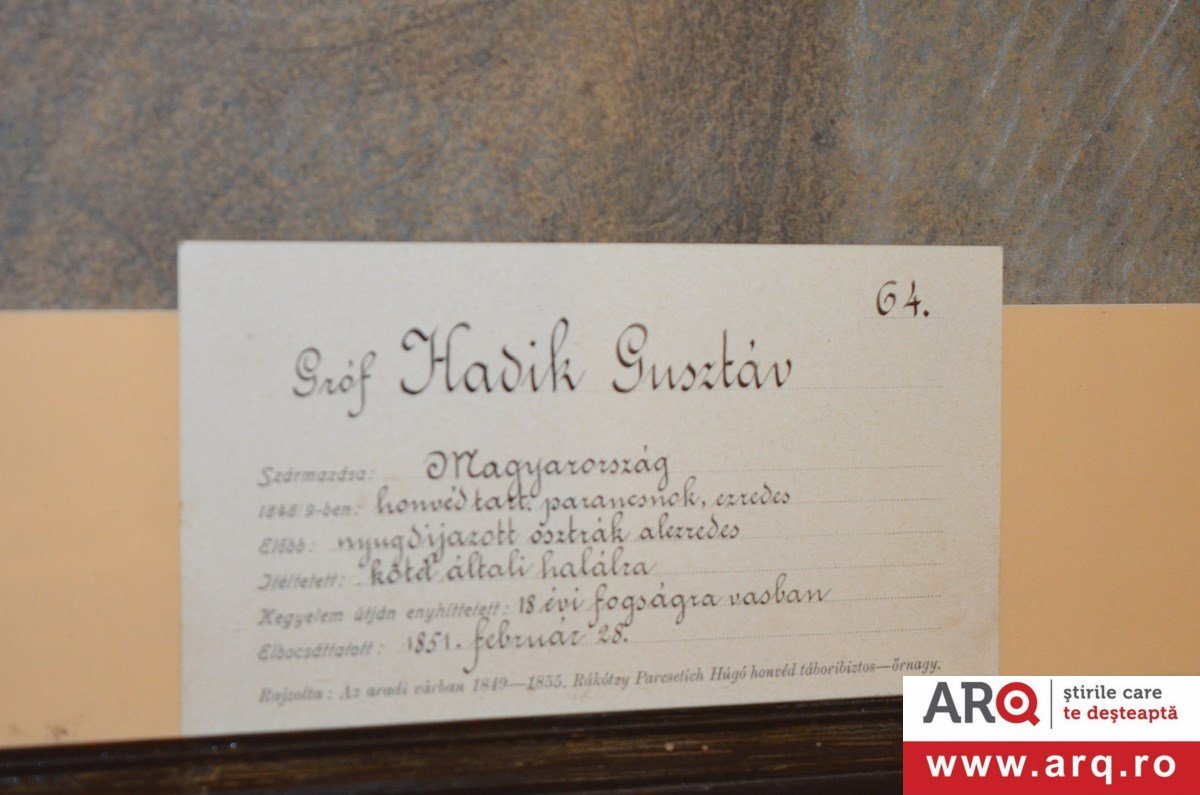 64.
Gróf Hadik Gusztáv
Származása: Magyarország
1848/9-ben: honvéd tart. parancsnok, ezredes
Előbb: nyugdijazott osztrák alezredes
Itéltetett: kötél általi halálra
Kegyelem útján enyhíttetett: 18 évi fogságra vasban
Elbocsáttatott: 1851. február 28.
Rajzolta: Az aradi várban 1849—1855. Rákótzy Parcsetich Húgó honvéd táboribiztos—őrnagy.
ARQ
știrile care
te deșteaptă
www.arq.ro